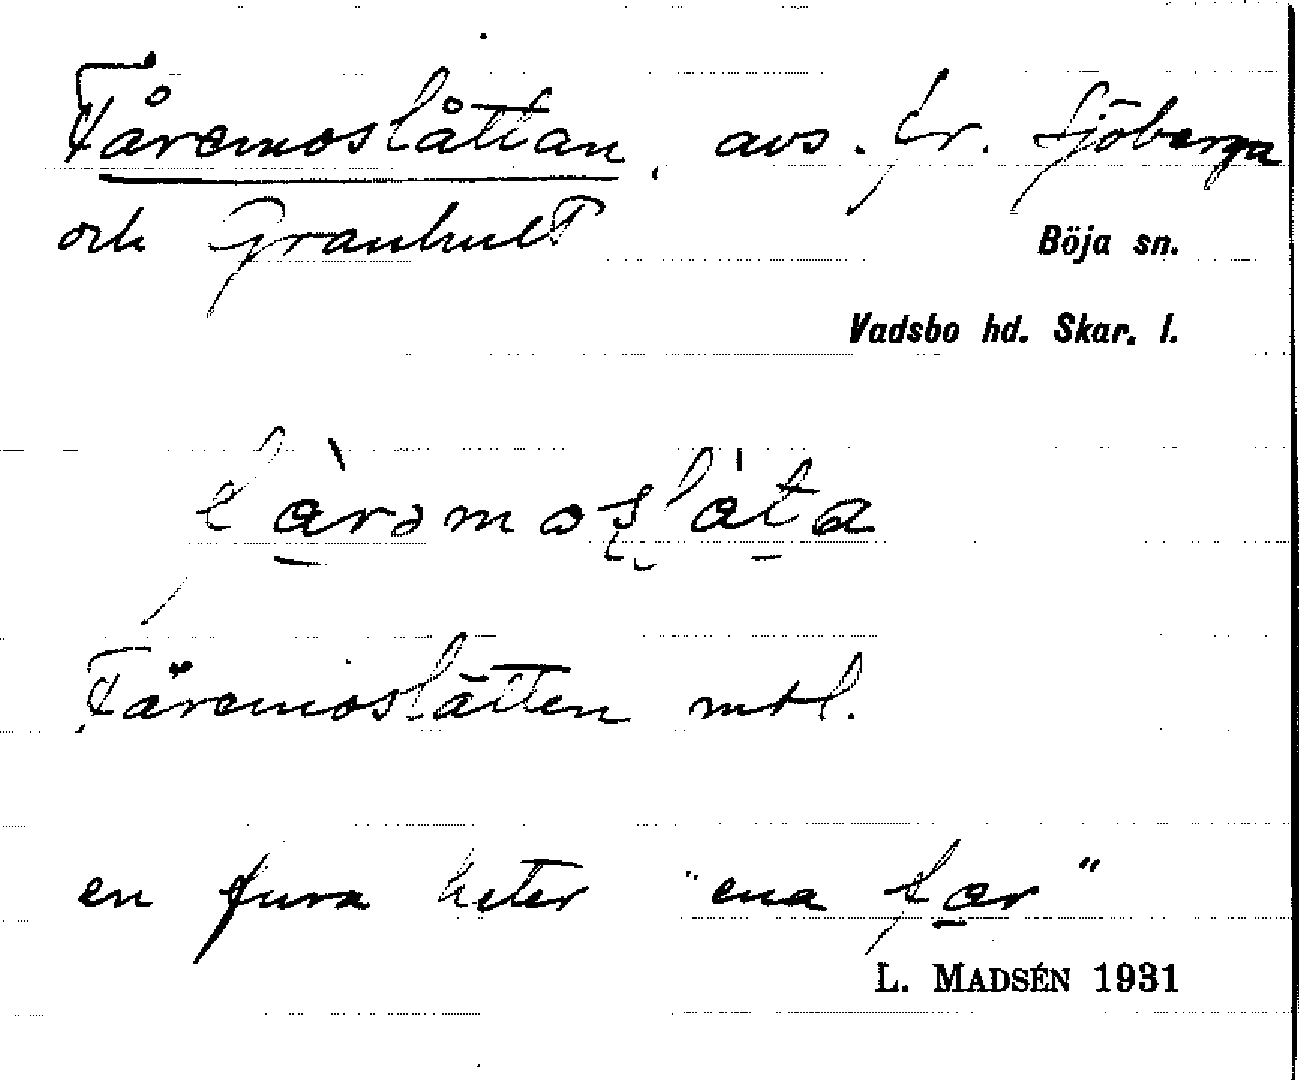 Fåremoslåttan, avs. fr. Sjöberga
och Granhult
Böja sn.
Vadsbo hd. Skar. l.
Fåremoslätten mtl.
en fura heter "ena far"
L. MADSÉN 1931